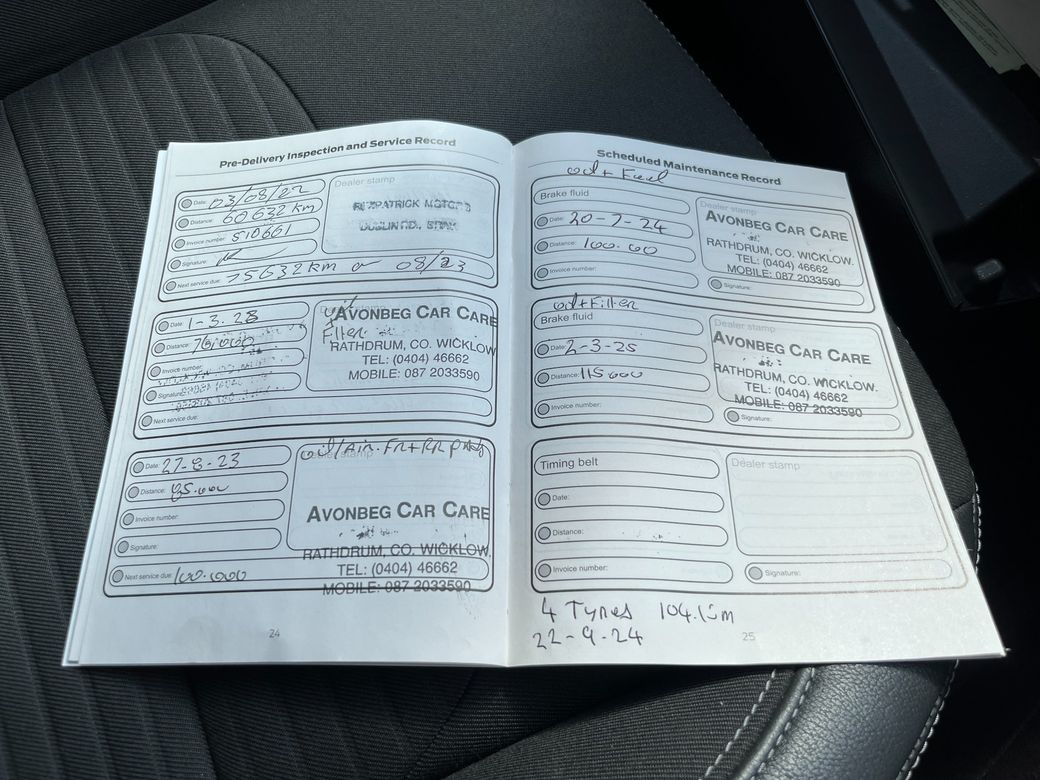 Pre-Delivery Inspection and Service Record
Date: 03/08/22
Distance: 60632 km
Invoice number: 510661
Signature:
Next service due: 75632 km or 08/23
Dealer stamp
FITZPATRICK MOTORS
DUBLIN RD., BRAY
Date: 1-3.23
Distance:
Invoice number:
Signature:
Next service due:
oil
Filter
AVONBEG CAR CARE
RATHDRUM, CO. WICKLOW
TEL: (0404) 46662
MOBILE: 087 2033590
Date: 27-8-23
Distance: 85.000
Invoice number:
Signature:
Next service due: 100.000
oil/Air. FR+RR PADS
Dealer stamp
AVONBEG CAR CARE
RATHDRUM, CO. WICKLOW,
TEL: (0404) 46662
MOBILE: 087 2033590
24
Scheduled Maintenance Record
oil + Fuel
Brake fluid
Date: 20-7-24
Distance: 100.00
Invoice number:
Dealer stamp
AVONBEG CAR CARE
RATHDRUM, CO. WICKLOW.
TEL: (0404) 46662
MOBILE: 087 2033590
Signature:
oil+Filter
Brake fluid
Date: 2-3-25
Distance: 115000
Invoice number:
Dealer stamp
AVONBEG CAR CARE
RATHDRUM, CO. WICKLOW.
TEL: (0404) 46662
MOBILE: 087 2033590
Signature:
Timing belt
Date:
Distance:
Invoice number:
Dealer stamp
Signature:
4 Tyres 104.
22-9-24
25